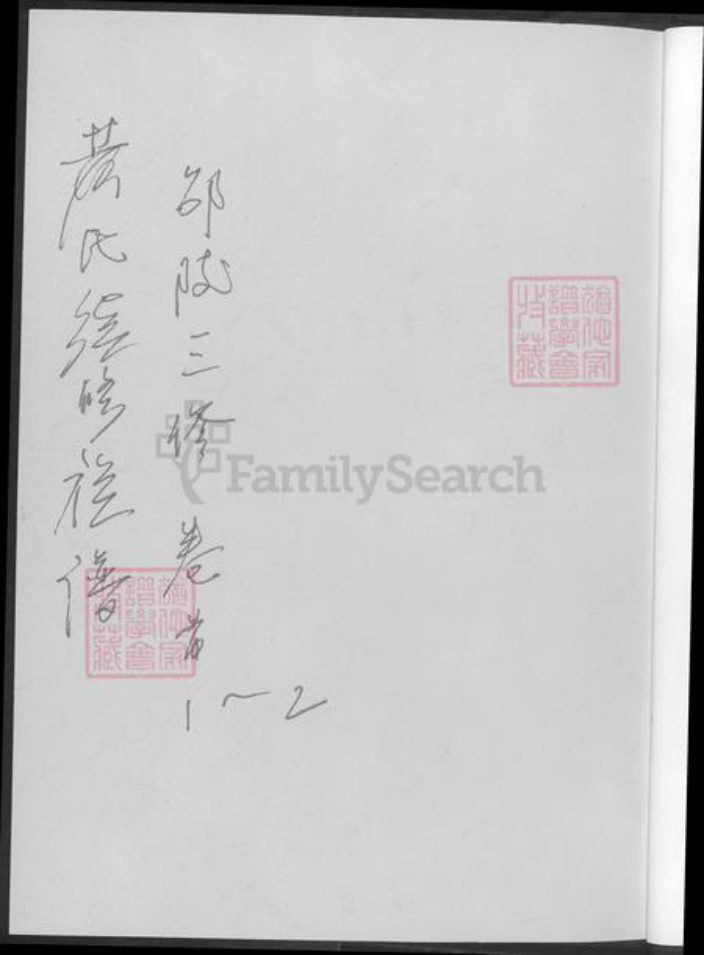 猶他家
譜學會
收藏
邵陵三修 卷首
1~2
黄氏续修族谱
猶他家
譜學會
收藏
FamilySearch